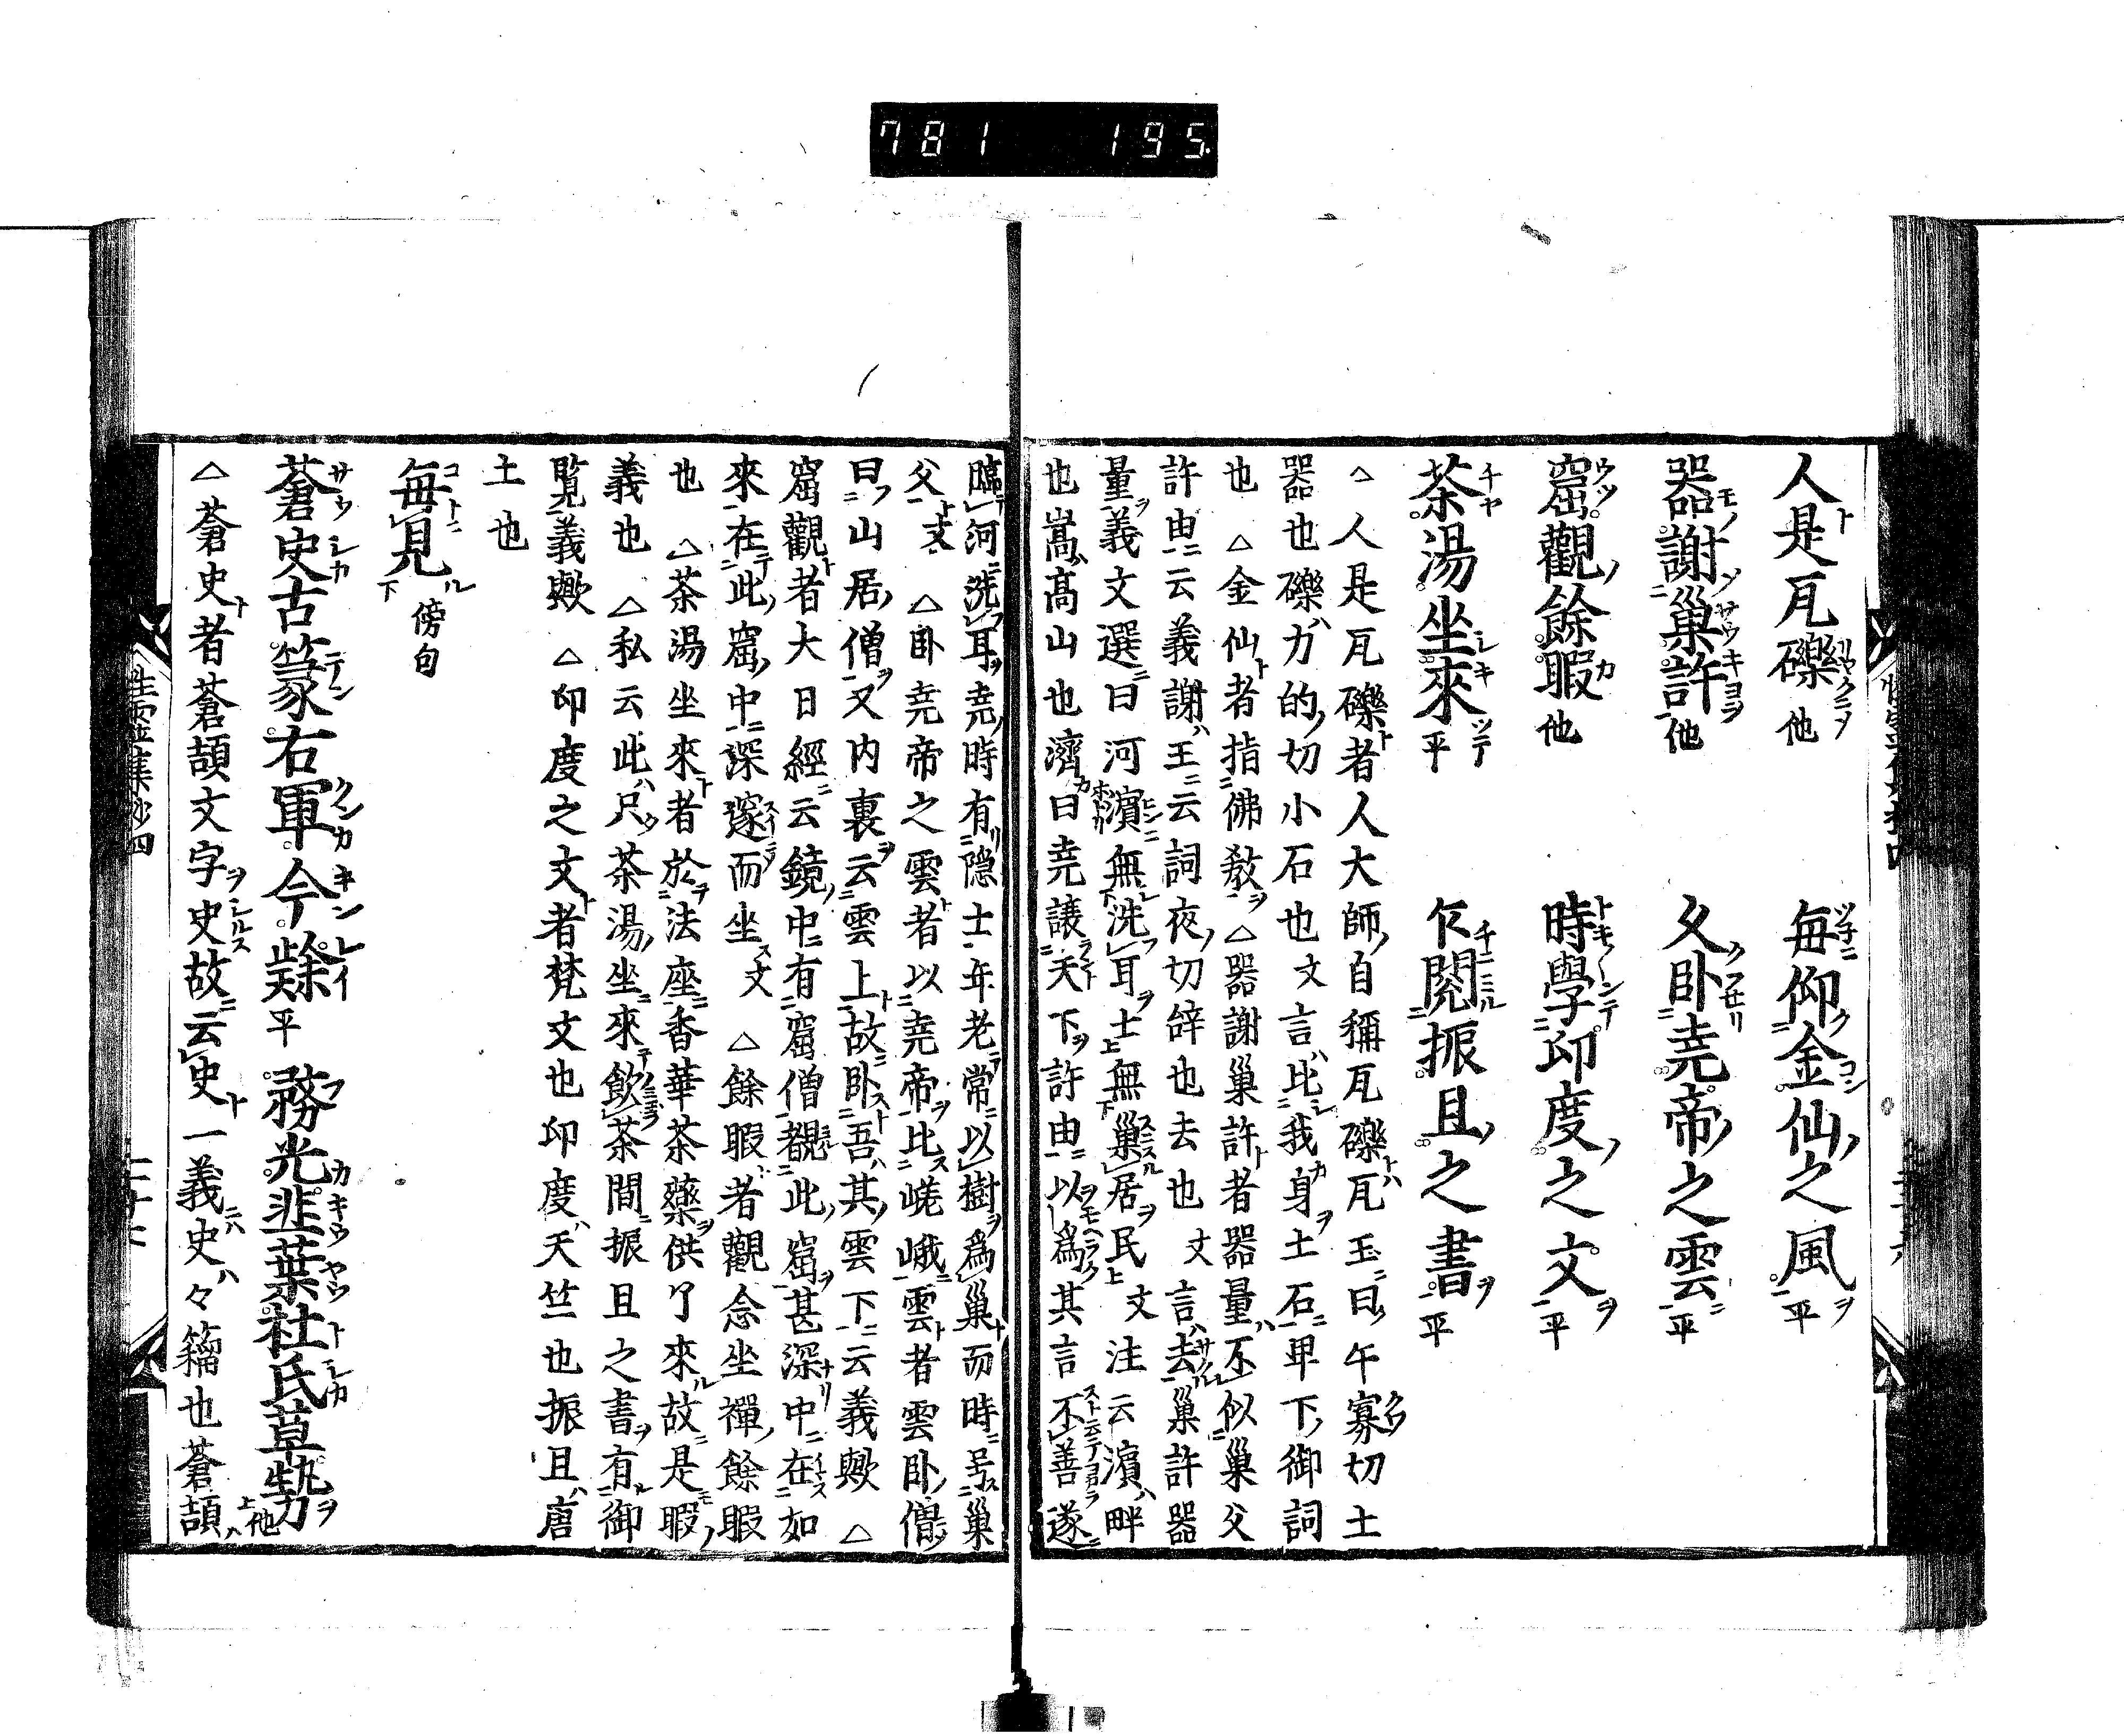 781 195.
人是瓦礫他 毎仰金仙之風平
器謝巢許他 久臥堯帝之雲平
窟觀餘暇他 時學印度之文平
茶湯坐來平 乍閲振且之書平
△人是瓦礫者人大師自稱瓦礫瓦玉曰午寡切土
器也礫力的切小石也文言比我身土石卑下御詞
也△金仙者指佛教△器謝巢許者器量不似巢父
許由云義謝王云詞夜切辝也去也文言去巢許器
量義文選曰河濵無洗耳士無巢居民文注云濵畔
也嵩高山也濟曰堯讓天下許由以爲其言不善遂
臨河洗耳堯時有隠士年老常以樹爲巢而時号巢
父文△臥堯帝之雲者以堯帝比嵯峨雲者雲臥僧
曰山居僧又内裏云雲上故臥吾其雲下云義歟△
窟觀者大日經云鏡中有窟僧覩此窟甚深中在如
來在此窟中深邃而坐文△餘暇者觀念坐禪餘暇
也△茶湯坐來者於法座香華茶藥供了來故是暇
義也△私云此只茶湯坐來飲茶間振且之書有御
覧義歟△印度之文者梵文也印度天竺也振且唐
土也
毎見傍句
蒼史古篆右軍今隸平 務光韭葉杜氏草勢他
△蒼史者蒼頡文字史故云史一義史々籀也蒼頡
性靈集鈔四